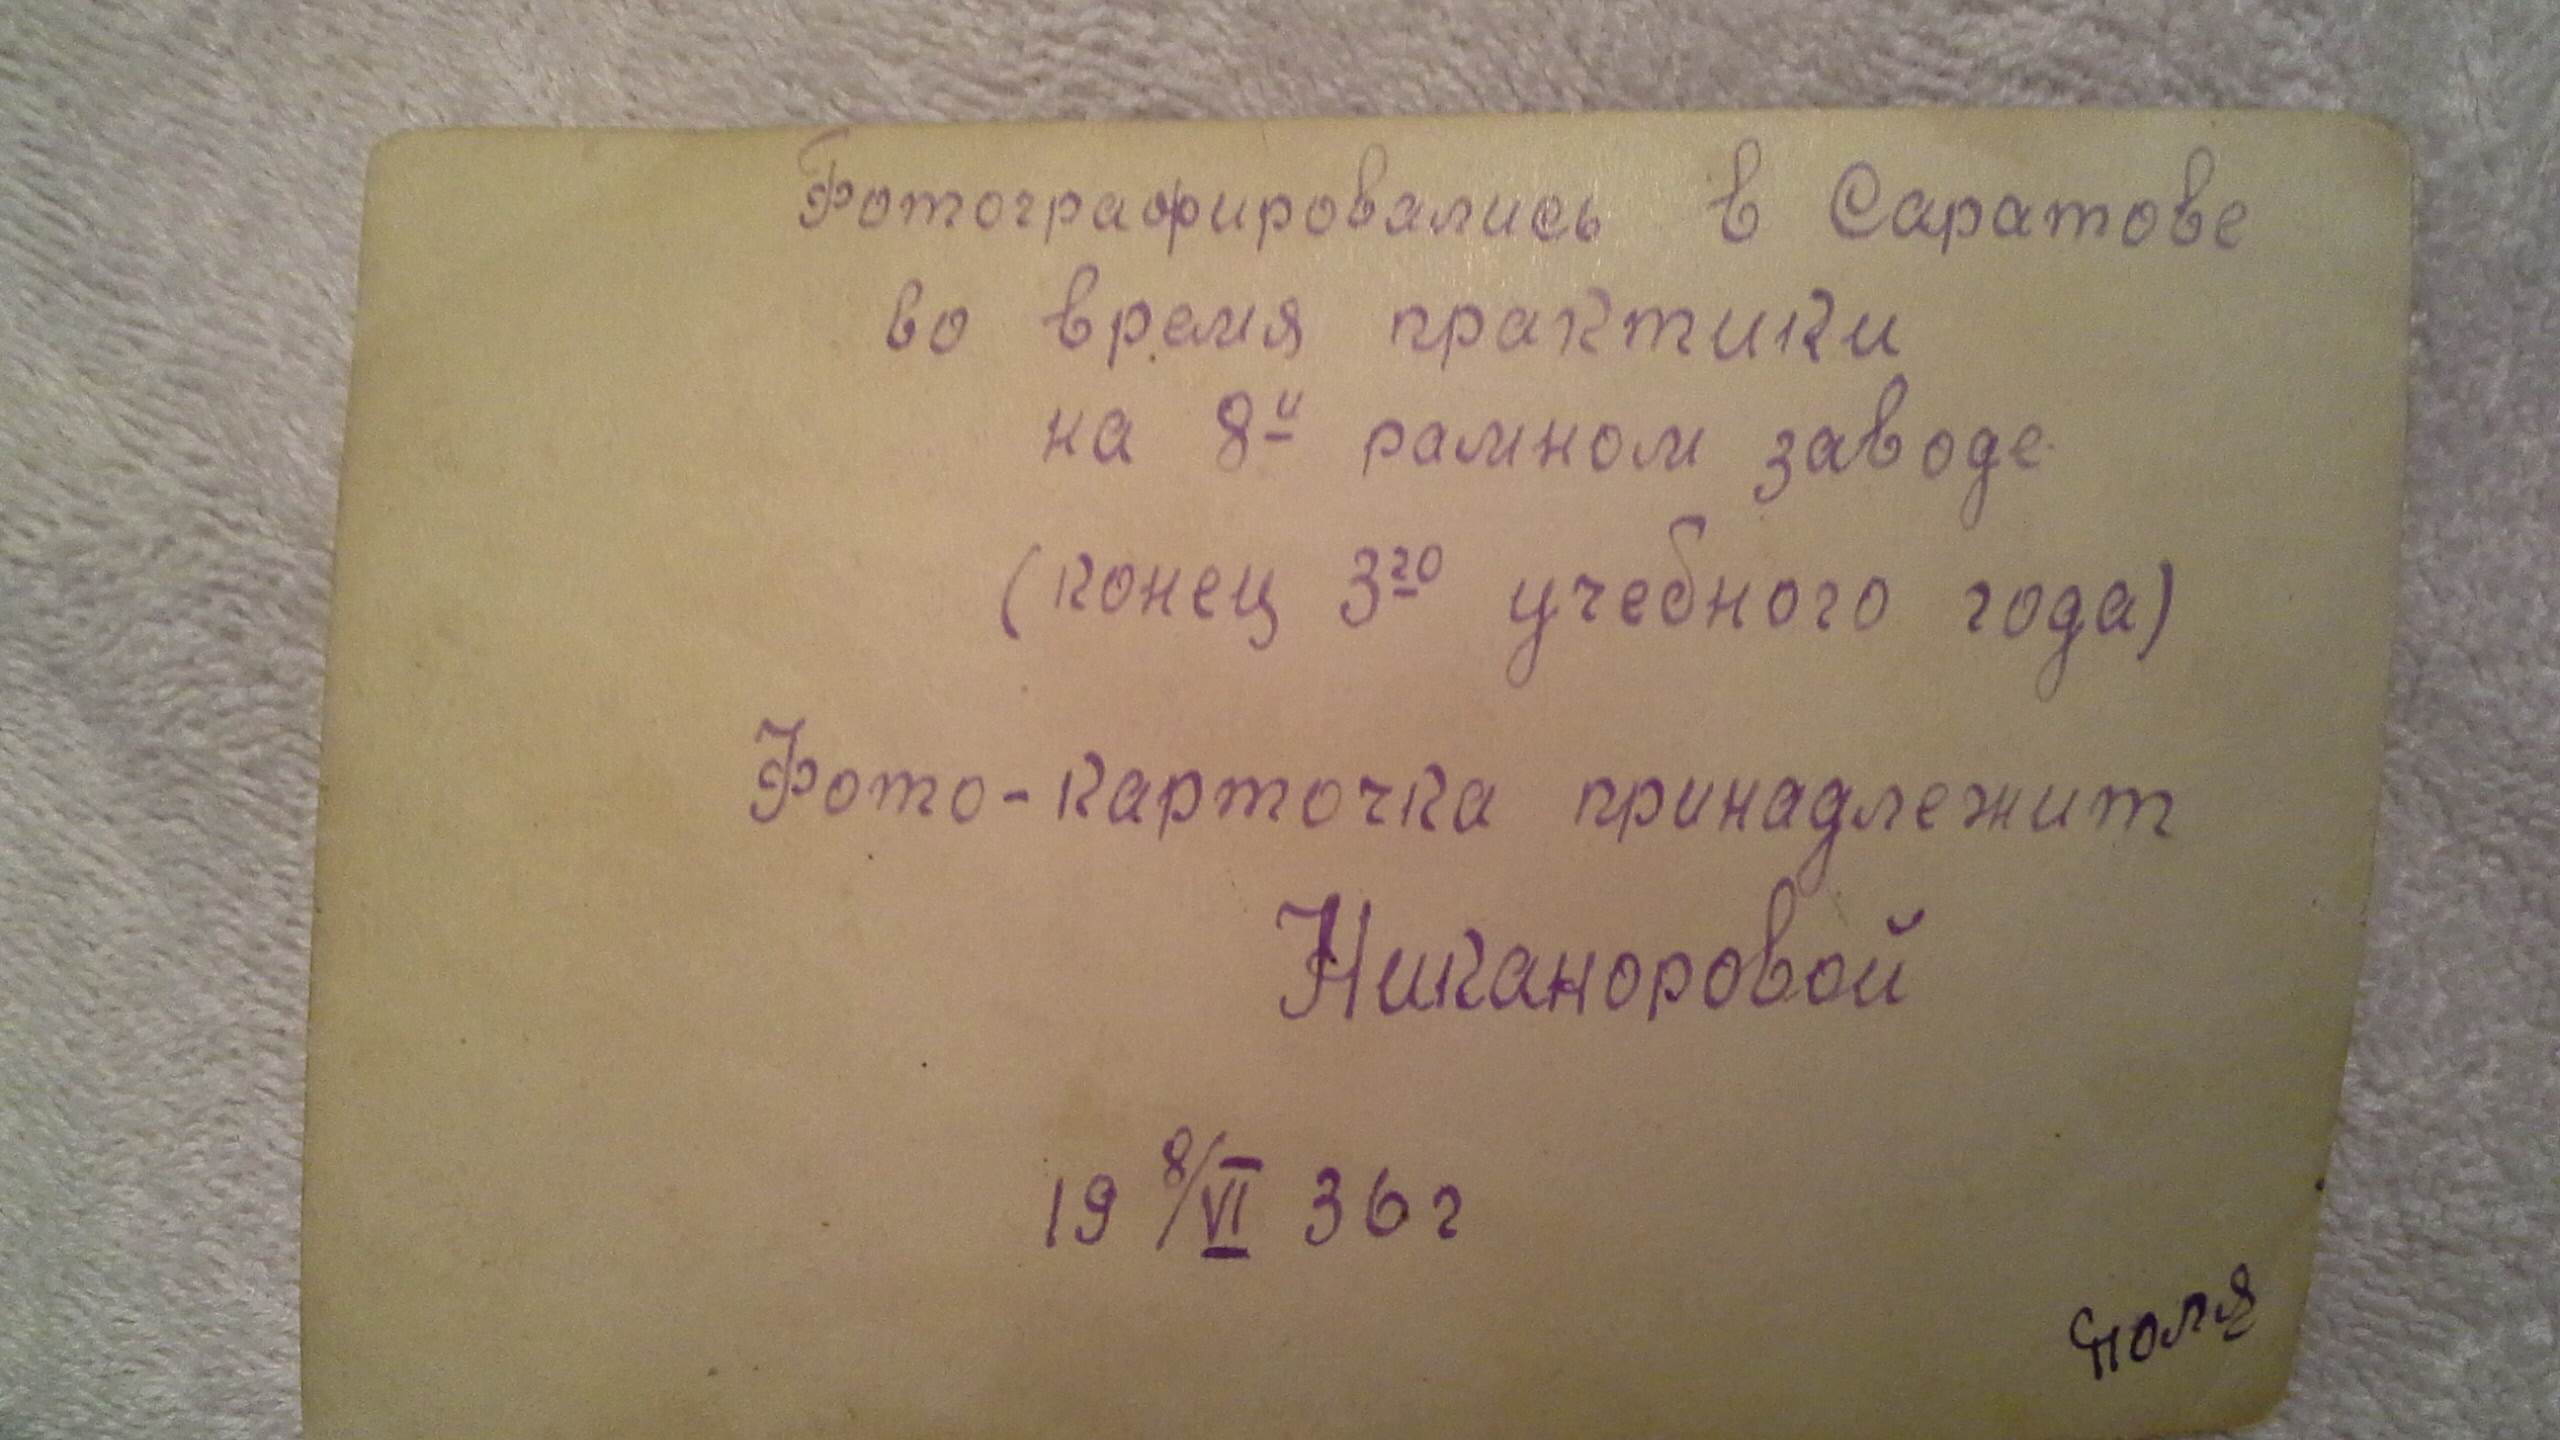 Фотографировались в Саратове
во время практики
на 8й рамном заводе
(конец 3го учебного года)
Фото-карточка принадлежит
Никаноровой
19 8/VI 36 г
поля